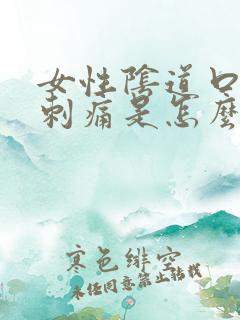 女性陰道口
刺痛是怎麼
寒色緋空
未任同意禁止轉載